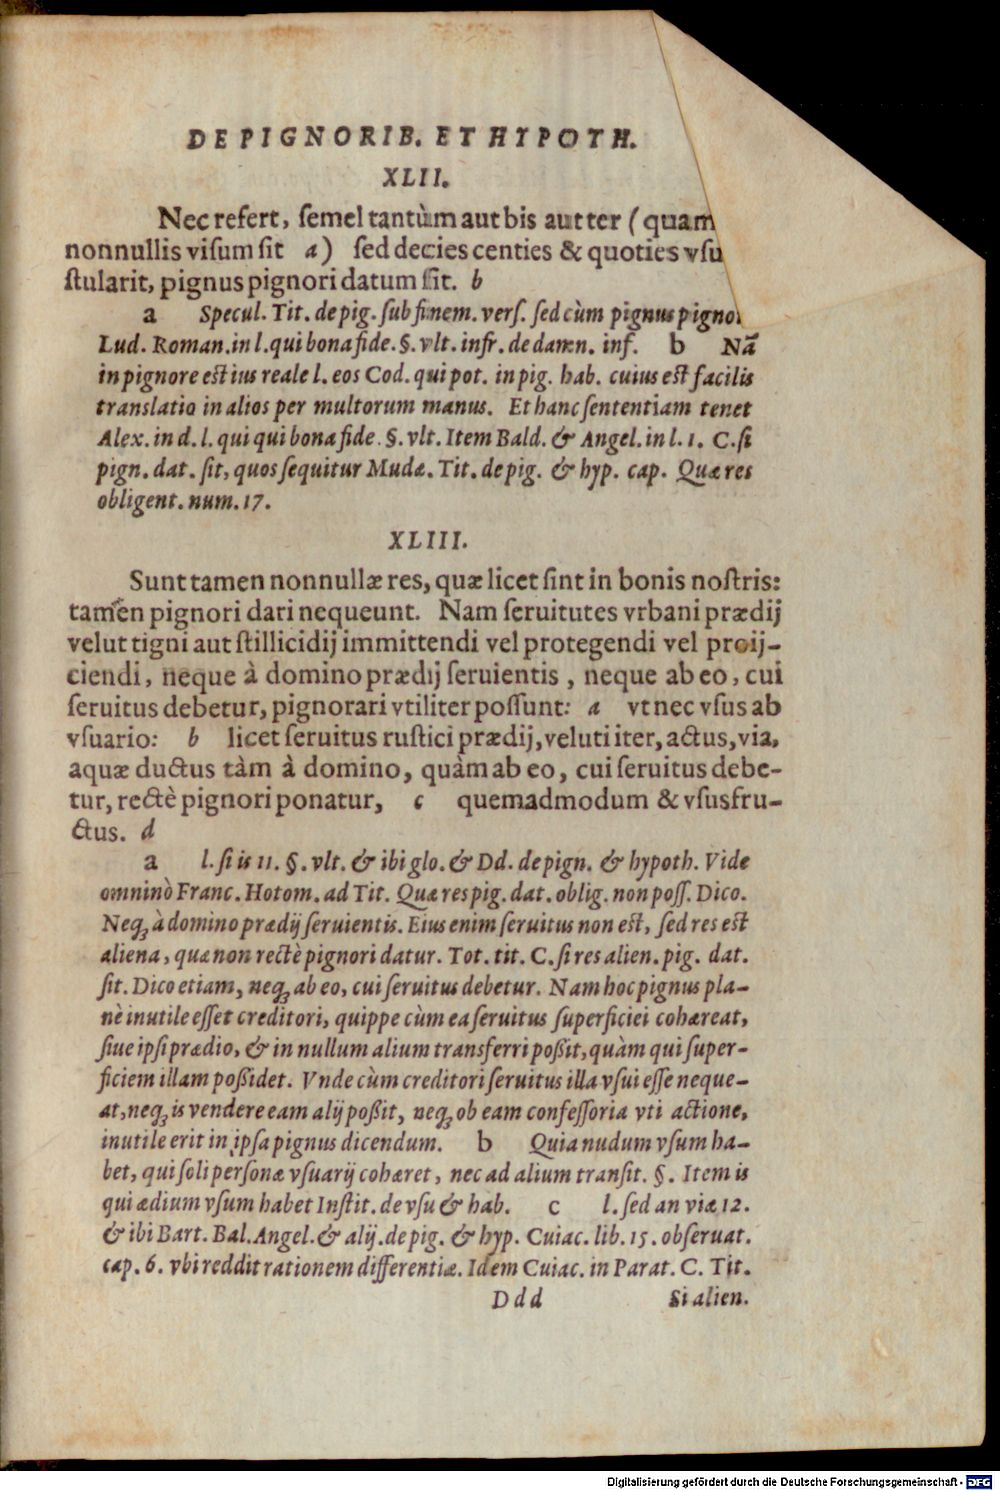 DE PIGNORIB. ET HYPOTH.
XLII.
Nec refert, semel tantùm aut bis aut ter (quam
nonnullis visum sit a) sed decies centies & quoties vsu
stularit, pignus pignori datum sit. b
a Specul. Tit. de pig. sub finem. vers. sed cùm pignus
Lud. Roman. in l. qui bona fide. §. vlt. infr. de damn. inf. b Nã
in pignore est ius reale l. eos Cod. qui pot. in pig. hab. cuius est facilis
translatio in alios per multorum manus. Et hanc sententiam tenet
Alex. in d. l. qui qui bona fide. §. vlt. Item Bald. & Angel. in l. 1. C. si
pign. dat. sit, quos sequitur Mudæ. Tit. de pig. & hyp. cap. Quæ res
obligent. num. 17.
XLIII.
Sunt tamen nonnullæ res, quæ licet sint in bonis nostris:
tamen pignori dari nequeunt. Nam seruitutes vrbani prædij
velut tigni aut stillicidij immittendi vel protegendi vel proij-
ciendi, neque à domino prædij seruientis, neque ab eo, cui
seruitus debetur, pignorari vtiliter possunt: a vt nec vsus ab
vsuario: b licet seruitus rustici prædij, veluti iter, actus, via,
aquæ ductus tàm à domino, quàm ab eo, cui seruitus debe-
tur, rectè pignori ponatur, c quemadmodum & vsusfru-
ctus. d
a l. si is 11. §. vlt. & ibi glo. & Dd. de pign. & hypoth. Vide
omninò Franc. Hotom. ad Tit. Quæ res pig. dat. oblig. non poss. Dico.
Neq; à domino prædij seruientis. Eius enim seruitus non est, sed res est
aliena, quæ non rectè pignori datur. Tot. tit. C. si res alien. pig. dat.
sit. Dico etiam, neq; ab eo, cui seruitus debetur. Nam hoc pignus pla-
nè inutile esset creditori, quippe cùm ea seruitus superficiei cohæreat,
siue ipsi prædio, & in nullum alium transferri poßit, quàm qui super-
ficiem illam poßidet. Vnde cùm creditori seruitus illa vsui esse neque-
at, neq; is vendere eam alij poßit, neq; ob eam confessoria vti actione,
inutile erit in ipsa pignus dicendum. b Quia nudum vsum ha-
bet, qui soli personæ vsuarij cohæret, nec ad alium transit. §. Item is
qui ædium vsum habet Instit. de vsu & hab. c l. sed an viæ 12.
& ibi Bart. Bal. Angel. & alij. de pig. & hyp. Cuiac. lib. 15. obseruat.
cap. 6. vbi reddit rationem differentiæ. Idem Cuiac. in Parat. C. Tit.
Ddd Si alien.
Digitalisierung gefördert durch die Deutsche Forschungsgemeinschaft - DFG